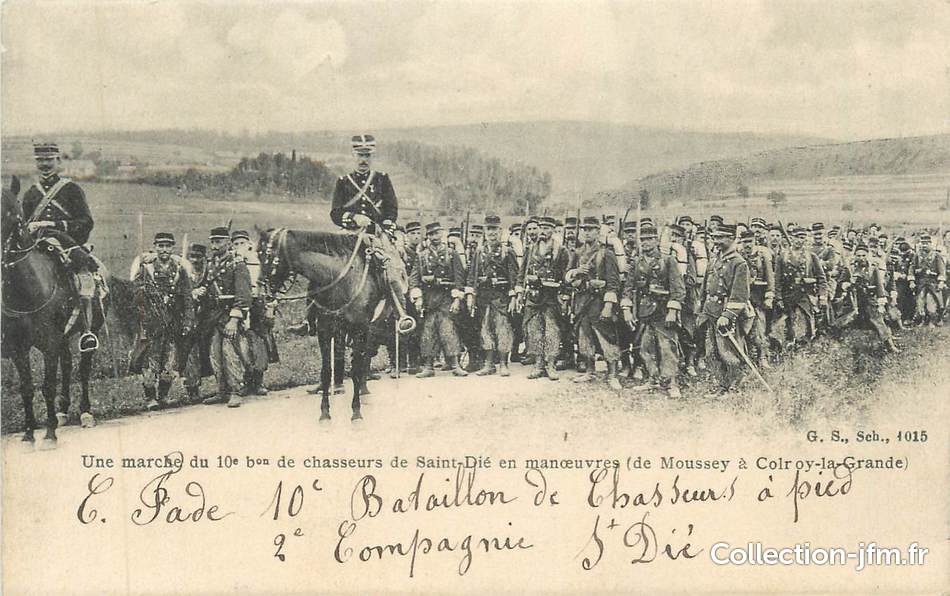 G. S., Sch., 1015
Une marche du 10e bon de chasseurs de Saint-Dié en manœuvres (de Moussey à Colroy-la-Grande)
C. Fade 10e Bataillon de Chasseurs à pied
2e Compagnie St Dié
Collection-jfm.fr